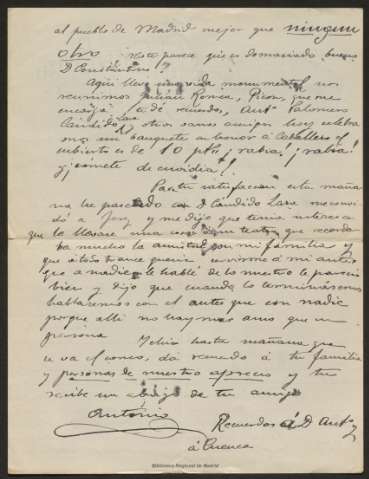 al pueblo de Madrid mejor que ningun
otro No te parece que es demasiado bueno
D Constantino?
Aqui llevo vida monumental nos
reunimos Julian Romea, Pison que me
encarga te dé recuerdos, Antº Palomero
Candido Lara y otros varios amigos hoy celebra
mos un banquete en honor á Caballero el
cubierto es de 10 pts, ¡rabia! ¡rabia!
y ¡cómete de envidia!
Para tu satisfaccion esta maña
na he paseado con D Candido Lara me convi
dó a y me dijo que tenia interes en
que le llevase una cosa á su teatro, que recorda
ba mucho la amistad con mi familia y
que á todo trance queria unirme á mi antes
que á nadie le hablé de lo nuestro le pareció
bien y dijo que cuando lo terminásemos
hablaremos con el antes que con nadie
porque alli no hay mas amo que su
persona
Felix hasta mañana que
se va el correo, da recuerdo á tu familia
y personas de nuestro aprecio y tu
recibe un abrazo de tu amigo
Antonio
Recuerdos á D Antº y
á Cuenca
Biblioteca Regional de Madrid